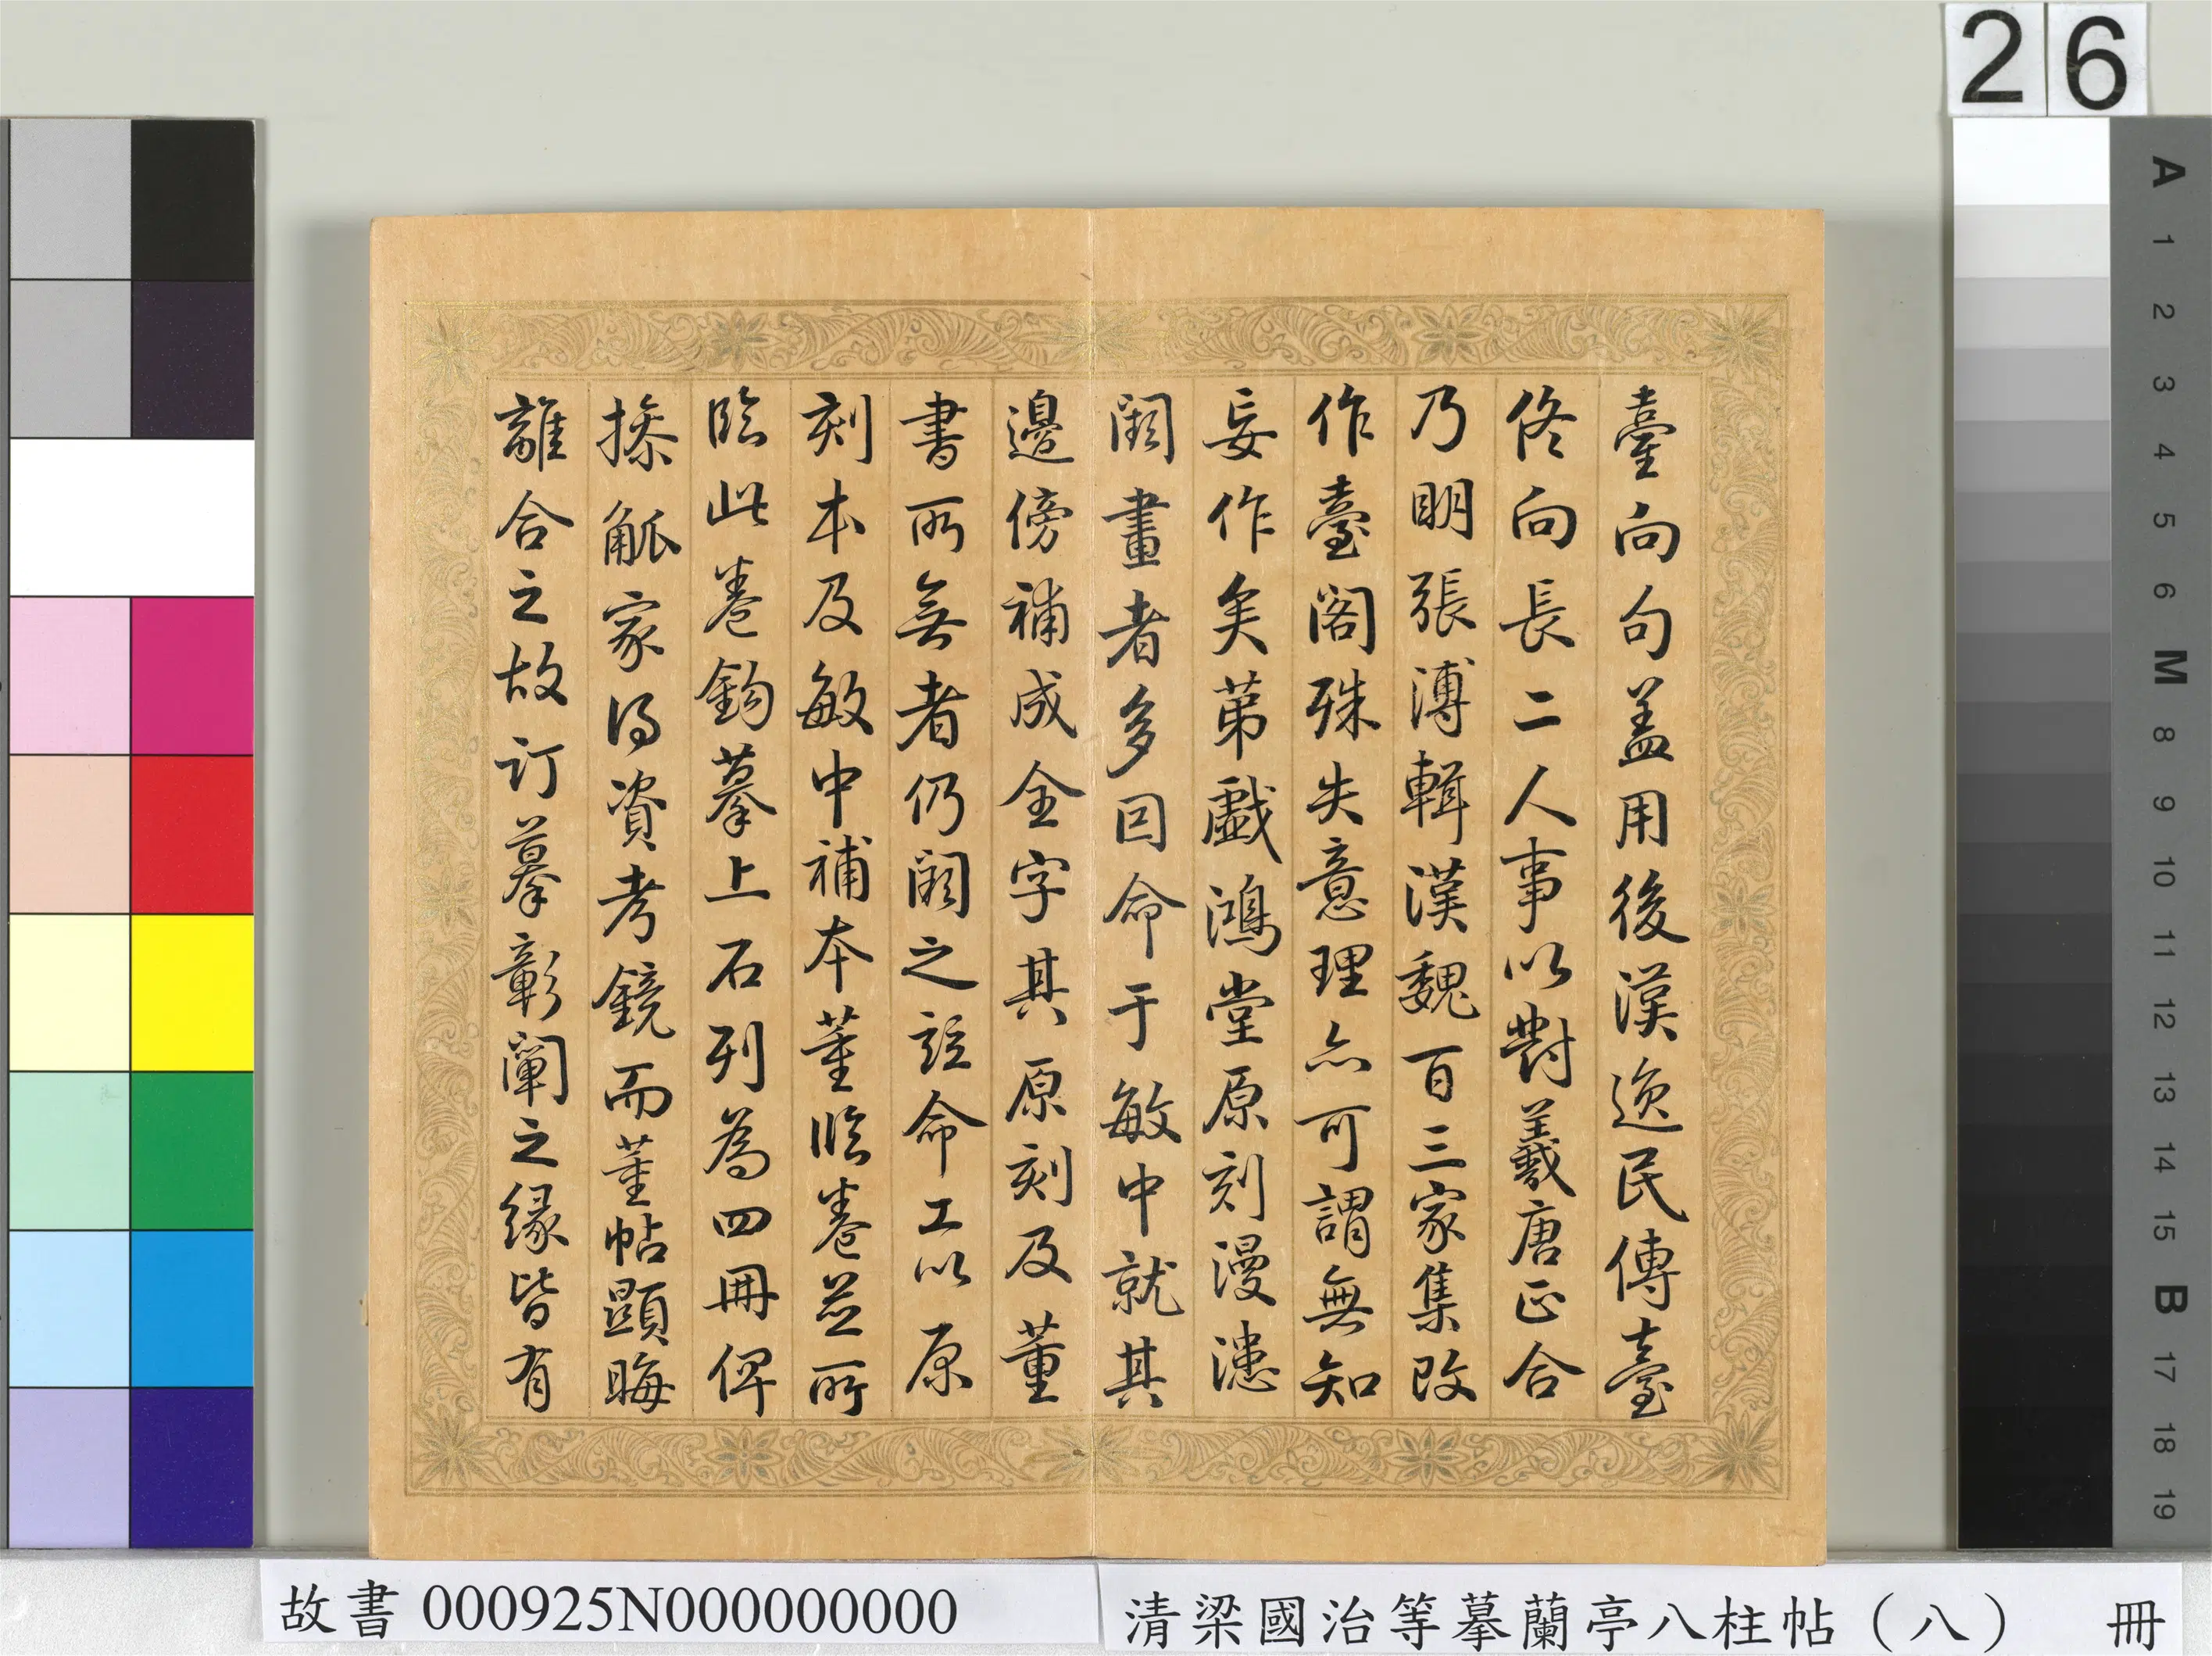 26
臺向句盖用後漢逸民傳臺
佟向長二人事以對羲唐正合
乃明張溥輯漢魏百三家集改
作臺閣殊失意理亦可謂無知
妄作矣第戯鴻堂原刻漫漶
闕畫者多回命于敏中就其
邊傍補成全字其原刻及董
書所無者仍闕之竝命工以原
刻本及敏中補本董臨卷並所
臨此卷鈎摹上石列為四冊俾
操觚家得資考鏡而董帖顯晦
離合之故訂摹彰闡之緣皆有
A 1 2 3 4 5 6 M 8 9 10 11 12 13 14 15 B 17 18 19
故書 000925N000000000
清梁國治等摹蘭亭八柱帖（八） 冊